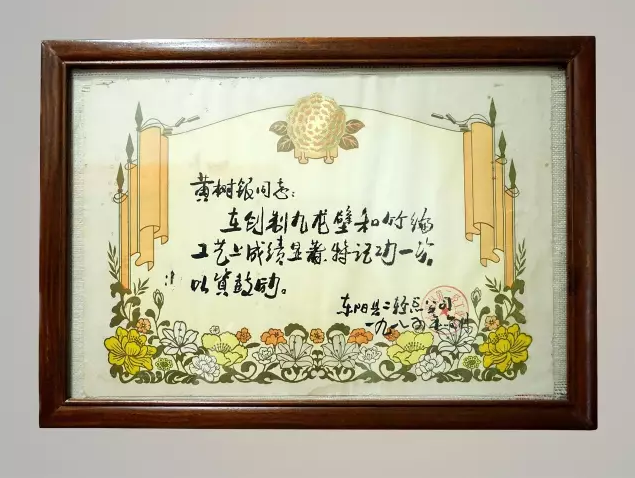 黄树银同志：
在创制九龙壁和竹编
工艺上成绩显著，特记功一次。
以资鼓励。
东阳县二轻总公司
一九八五年